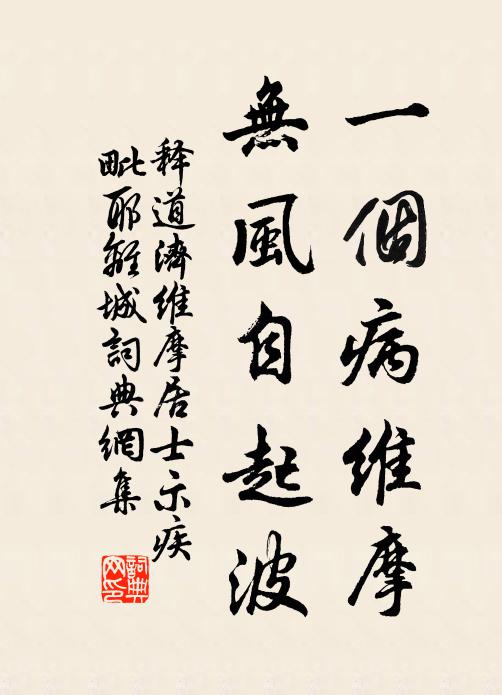 一個病維摩
無風自起波
释道濟維摩居士示疾
毗耶離城詞典網集
詞典网印